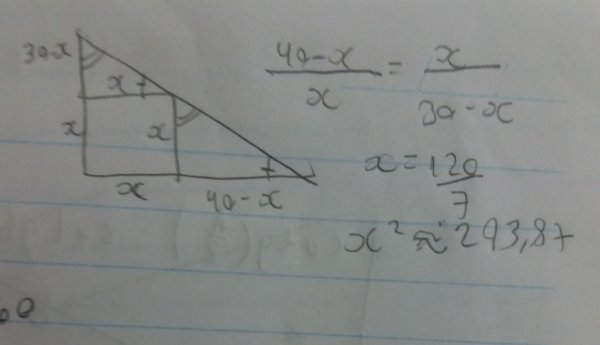 30-x
x
x
x
x
40-x
40-x/x = x/30-x
x = 120/7
x² ≈ 293,87